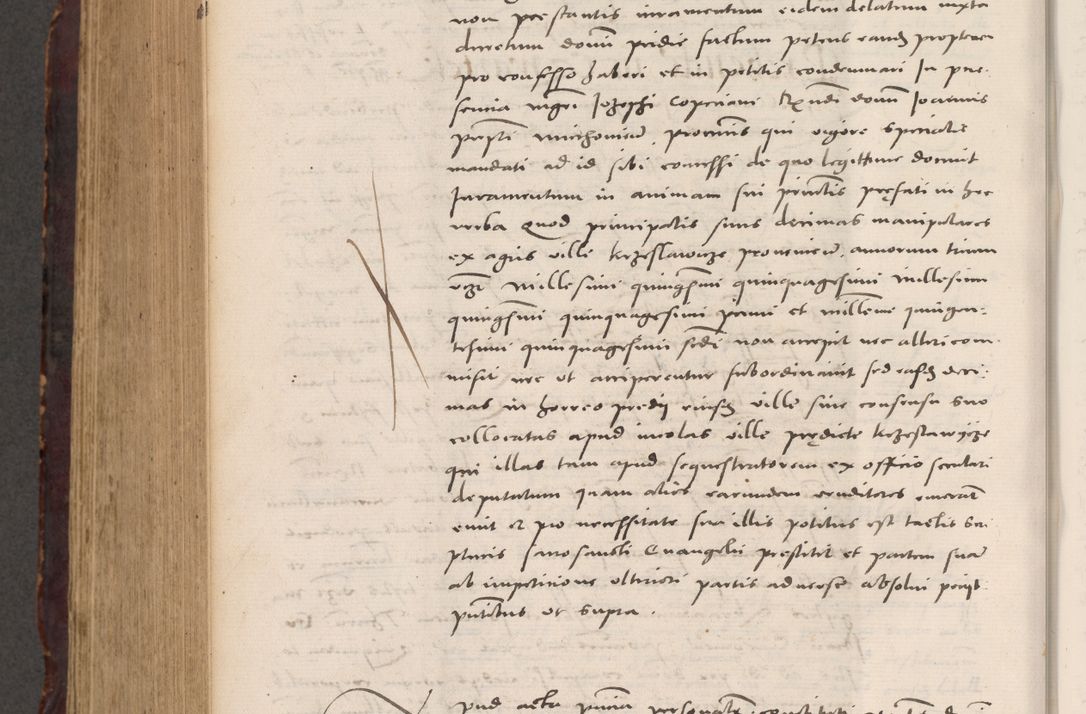 non prestantis iuramentum eidem delatum iuxta
decretum domini pridie factum petens eandem propterea
pro confesso haberi et in petitis condemnari In pre-
sencia magistri Josephi Copciani Rndi domini Joannis
prepositi Miechoviensis procuratoris qui vigore specialis
mandati ad id sibi concessi de quo legittime docuit
Juramentum in animam sui principalis prefati in hec
verba Quod principalis suus decimas manipulares
ex agris ville krzeslawicze provenientes annorum trium
videlicet Millesimi quingentesimi quinquagesimi Millesimi
quingentesimi quinquagesimi primi et millesimi quingen-
tesimi quinquagesimi secundi non accepit nec alteri com-
misit nec ut acciperentur subordinavit sed easdem deci-
mas in horreo predii eiusdem ville sine consensu suo
collocatas apud incolas ville predicte krzeslawycze
qui illas tam apud sequestratorem ex officio seculari
deputatum quam alios earundem venditores emerant
emit et pro necessitate sua illis potitus est tactis Scri-
pturis sacrosancti Evangelii prestitit et partem suam
ab impeticione ulteriori partis adverse absolvi petiit
presentibus ut supra .
pud acta personaliter constituti